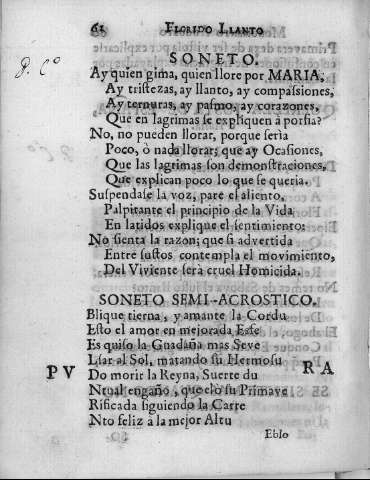 62 FLORIDO LLANTO
SONETO.
P. Cº
Ay quien gima, quien llore por MARIA,
Ay tristezas, ay llanto, ay compassiones,
Ay ternuras, ay pasmo, ay corazones,
Que en lagrimas se expliquen à porfia?
No, no pueden llorar, porque serìa
Poco, ò nada llorar; que ay Ocasiones,
Que las lagrimas son demonstraciones,
Que explican poco lo que se queria.
Suspendase la voz, pare el aliento,
Palpitante el principio de la Vida
En latidos explique el sentimiento:
No sienta la razon; que si advertida
Entre sustos contempla el movimiento,
Del Viviente serà cruel Homicida.
SONETO SEMI-ACROSTICO.
Blique tierna, y amante la Cordu
Esto el amor en mejorada Esse
Es quiso la Guadaña mas Seve
Lsar al Sol, matando su Hermosu
PV Do morir la Reyna, Suerte du RA
Ntual engaño, que clò su Primave
Rificada siguiendo la Carre
Nto feliz à la mejor Altu
Eblo